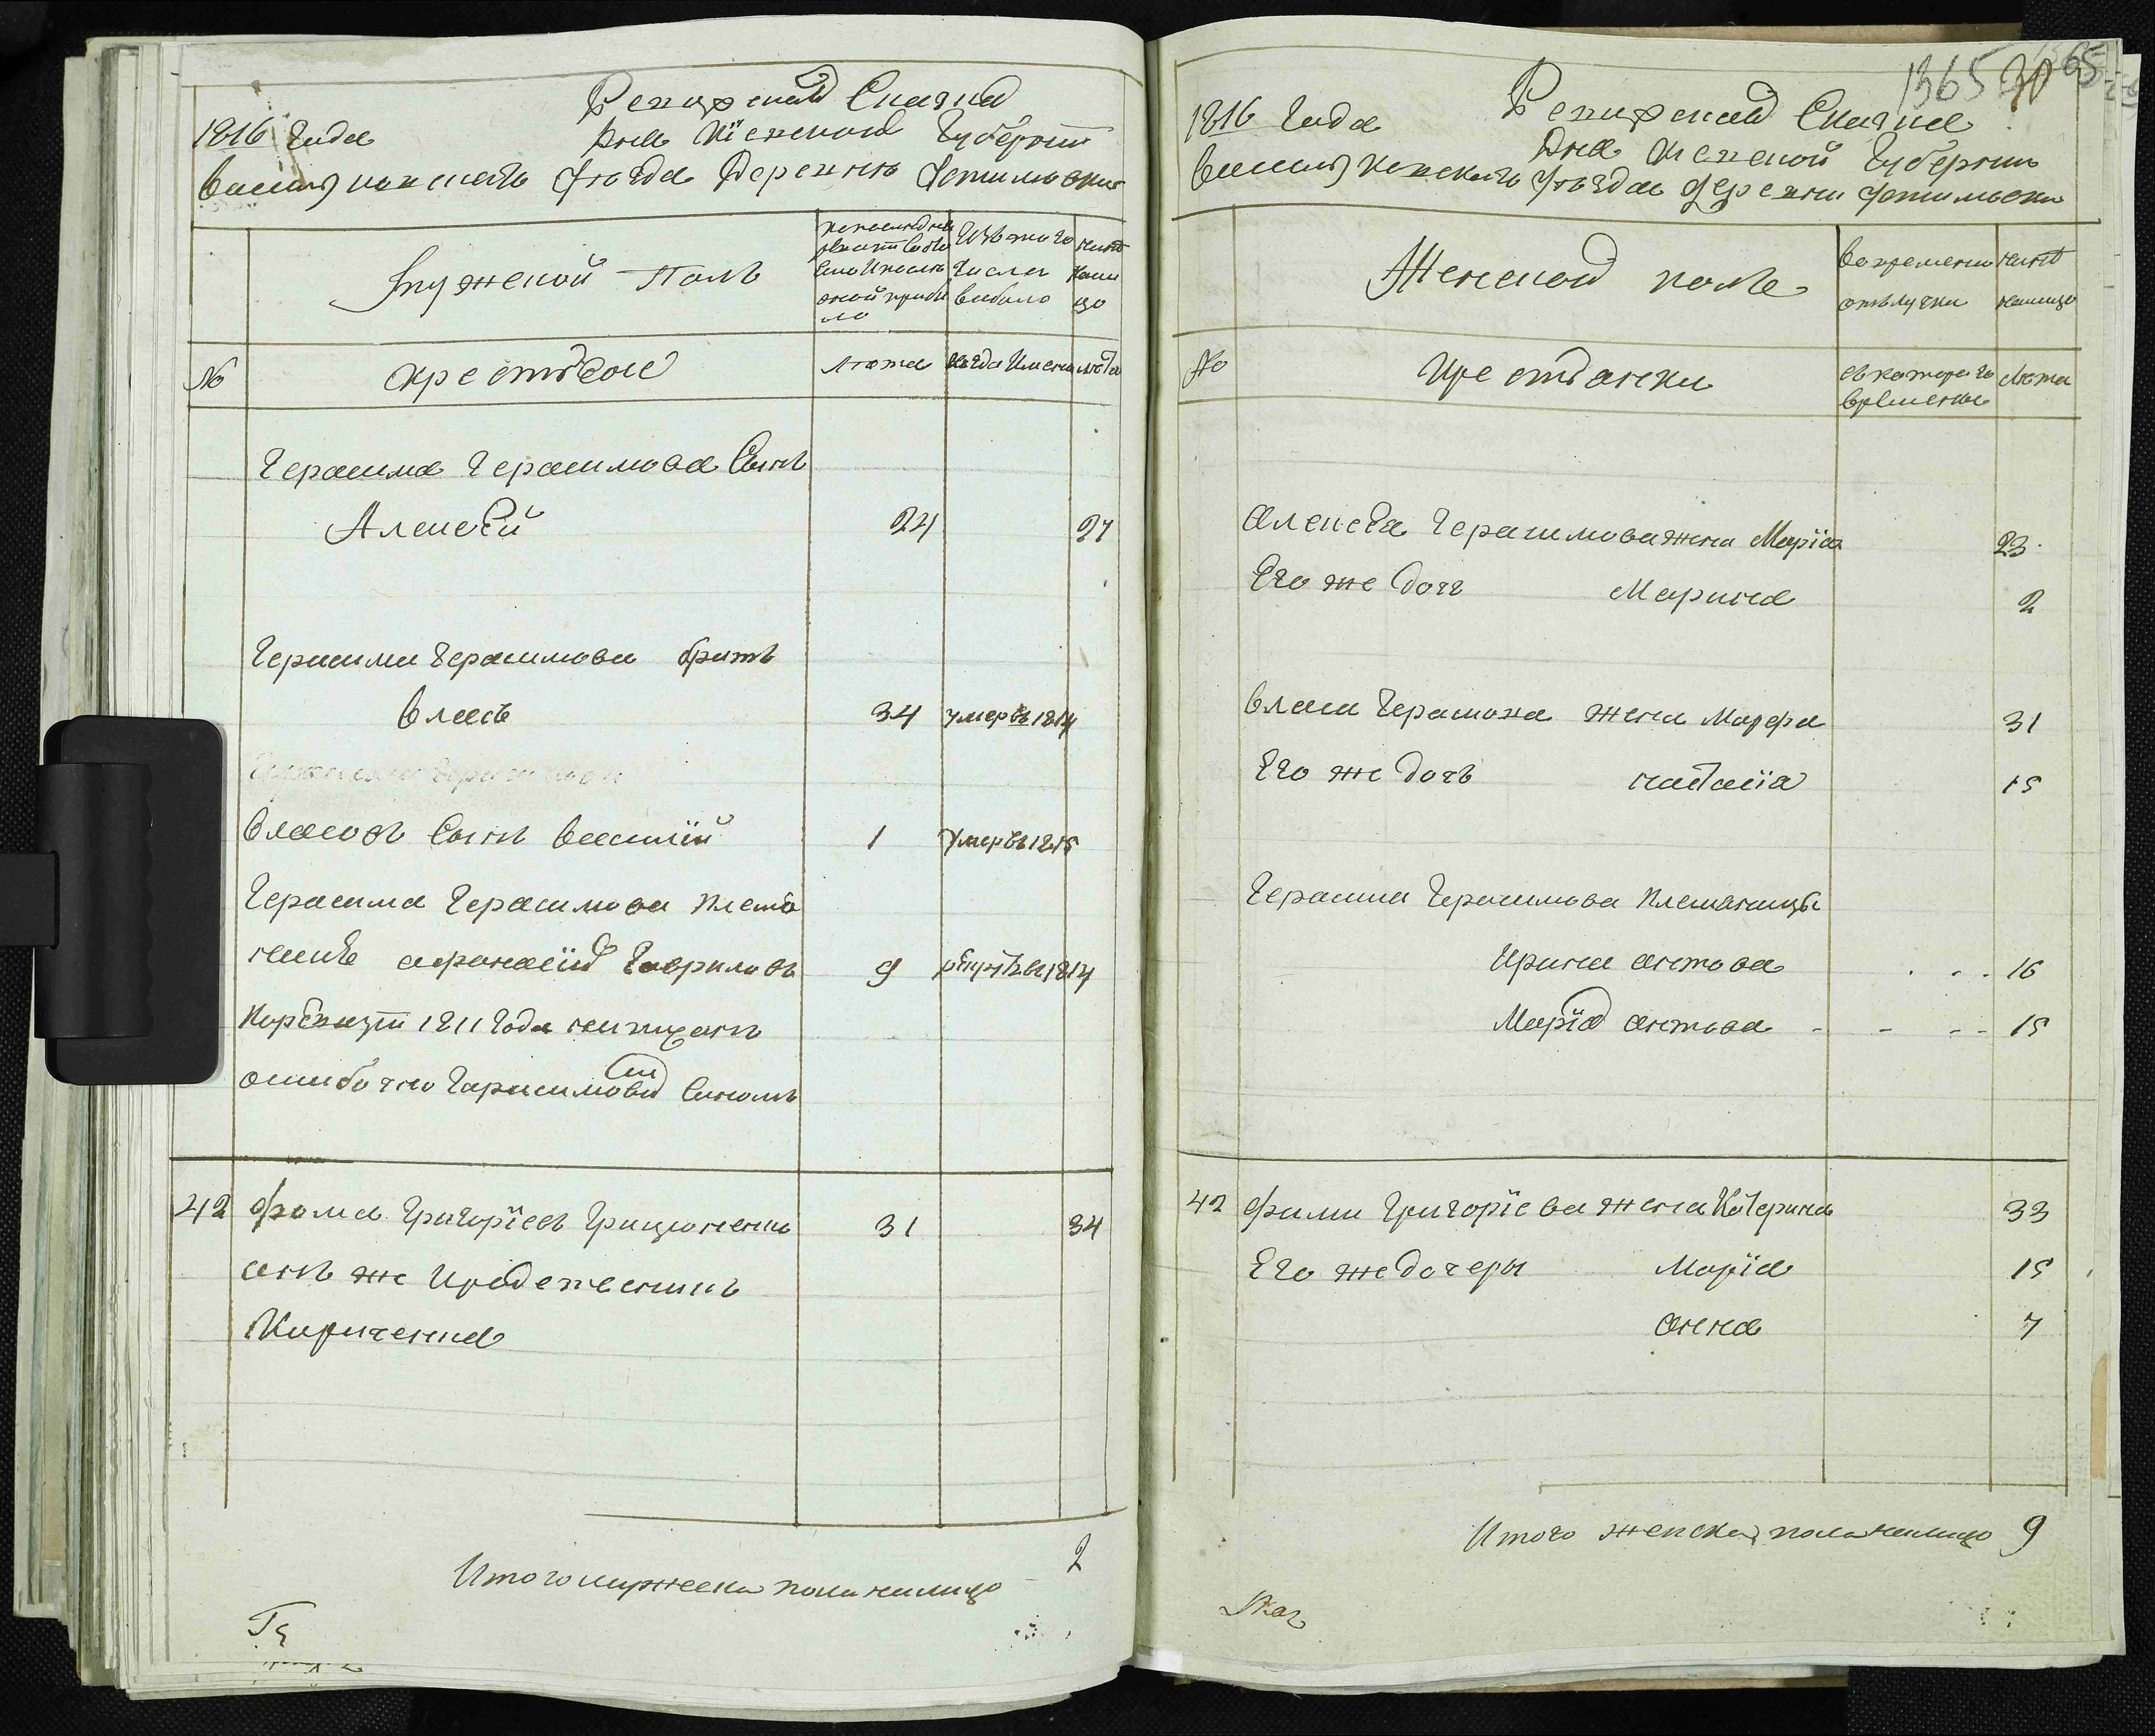 Ревижская Сказка
1816 Года Дня Кіевской Губерніи
Василковскаго уезда Деревни Фетилевки
Мужеской Полъ
По последней ревизіи состояло и после оной прибыло
Изъ того числа выбыло
ныне на лицо
№ Крестьяне Лета когда Именно лета
Герасима Герасимова Сынъ
Алексей 24 27
Герасима Герасимова братъ
Власъ 34 умеръ 1814
Власовъ Сынъ Василій 1 умеръ 1815
Герасима Герасимова племя
никъ афонасій Гавриловъ 9 рекрутъ в 1814
По ревизіи 1811 Года написанъ
ошибочно Гарасимовим Сыномъ
42 Фома Григоріевъ Грицюненко 31 34
онъ же
Кириченко
Итого мужеска пола налицо 2
1365 30
1816 Года Ревижская Сказка
Дня Кіевской Губерніи
Василковскаго уезда Деревни Фетилевки
Женской полъ
Во временной отлучки
ныне налицо
№ Крестьянки
съ котораго времени
Лета
Алексея Герасимова жена Марія 23
Его же дочь Марина 2
Власа Герасимова жена Марфа 31
Его же дочь настасія 15
Герасима Герасимова Племяницы
Ирина антова 16
Марія антова 15
42 Фомы Григоріева жена Катерина 33
Его же дочеры Марія 15
анна 7
Итого женска пола налицо 9